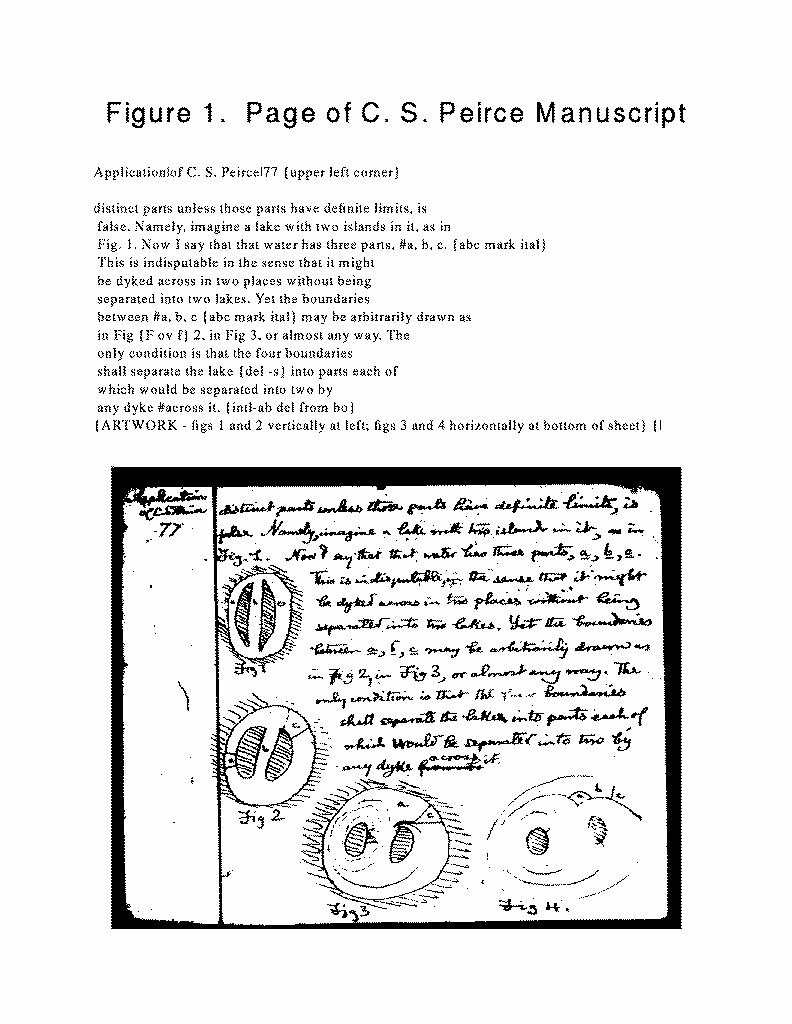 Figure 1. Page of C. S. Peirce Manuscript
Application|of C. S. Peirce|77 {upper left corner}
distinct parts unless those parts have definite limits, is
false. Namely, imagine a lake with two islands in it, as in
Fig. 1. Now I say that that water has three parts, #a, b, c. {abc mark ital}
This is indisputable in the sense that it might
be dyked across in two places without being
separated into two lakes. Yet the boundaries
between #a, b, c {abc mark ital} may be arbitrarily drawn as
in Fig {F ov f} 2, in Fig 3, or almost any way. The
only condition is that the four boundaries
shall separate the lake {del -s} into parts each of
which would be separated into two by
any dyke #across it. {intl-ab del from bo}
{ARTWORK - figs 1 and 2 vertically at left; figs 3 and 4 horizontally at bottom of sheet} {|
Application
of C. S. Peirce
77
distinct parts unless those parts have definite limits, is
false. Namely, imagine a lake with two islands in it, as in
Fig. 1. Now I say that that water has three parts, a, b, c.
This is indisputable, in the sense that it might
be dyked across in two places without being
separated into two lakes. Yet the boundaries
between a, b, c may be arbitrarily drawn as
in Fig 2, in Fig 3, or almost any way. The
only condition is that the four boundaries
shall separate the lake into parts each of
which would be separated into two by
across
any dyke it.
a b c
Fig 1
c
b
a
Fig 2
a
c
Fig 3
a b c
Fig 4.